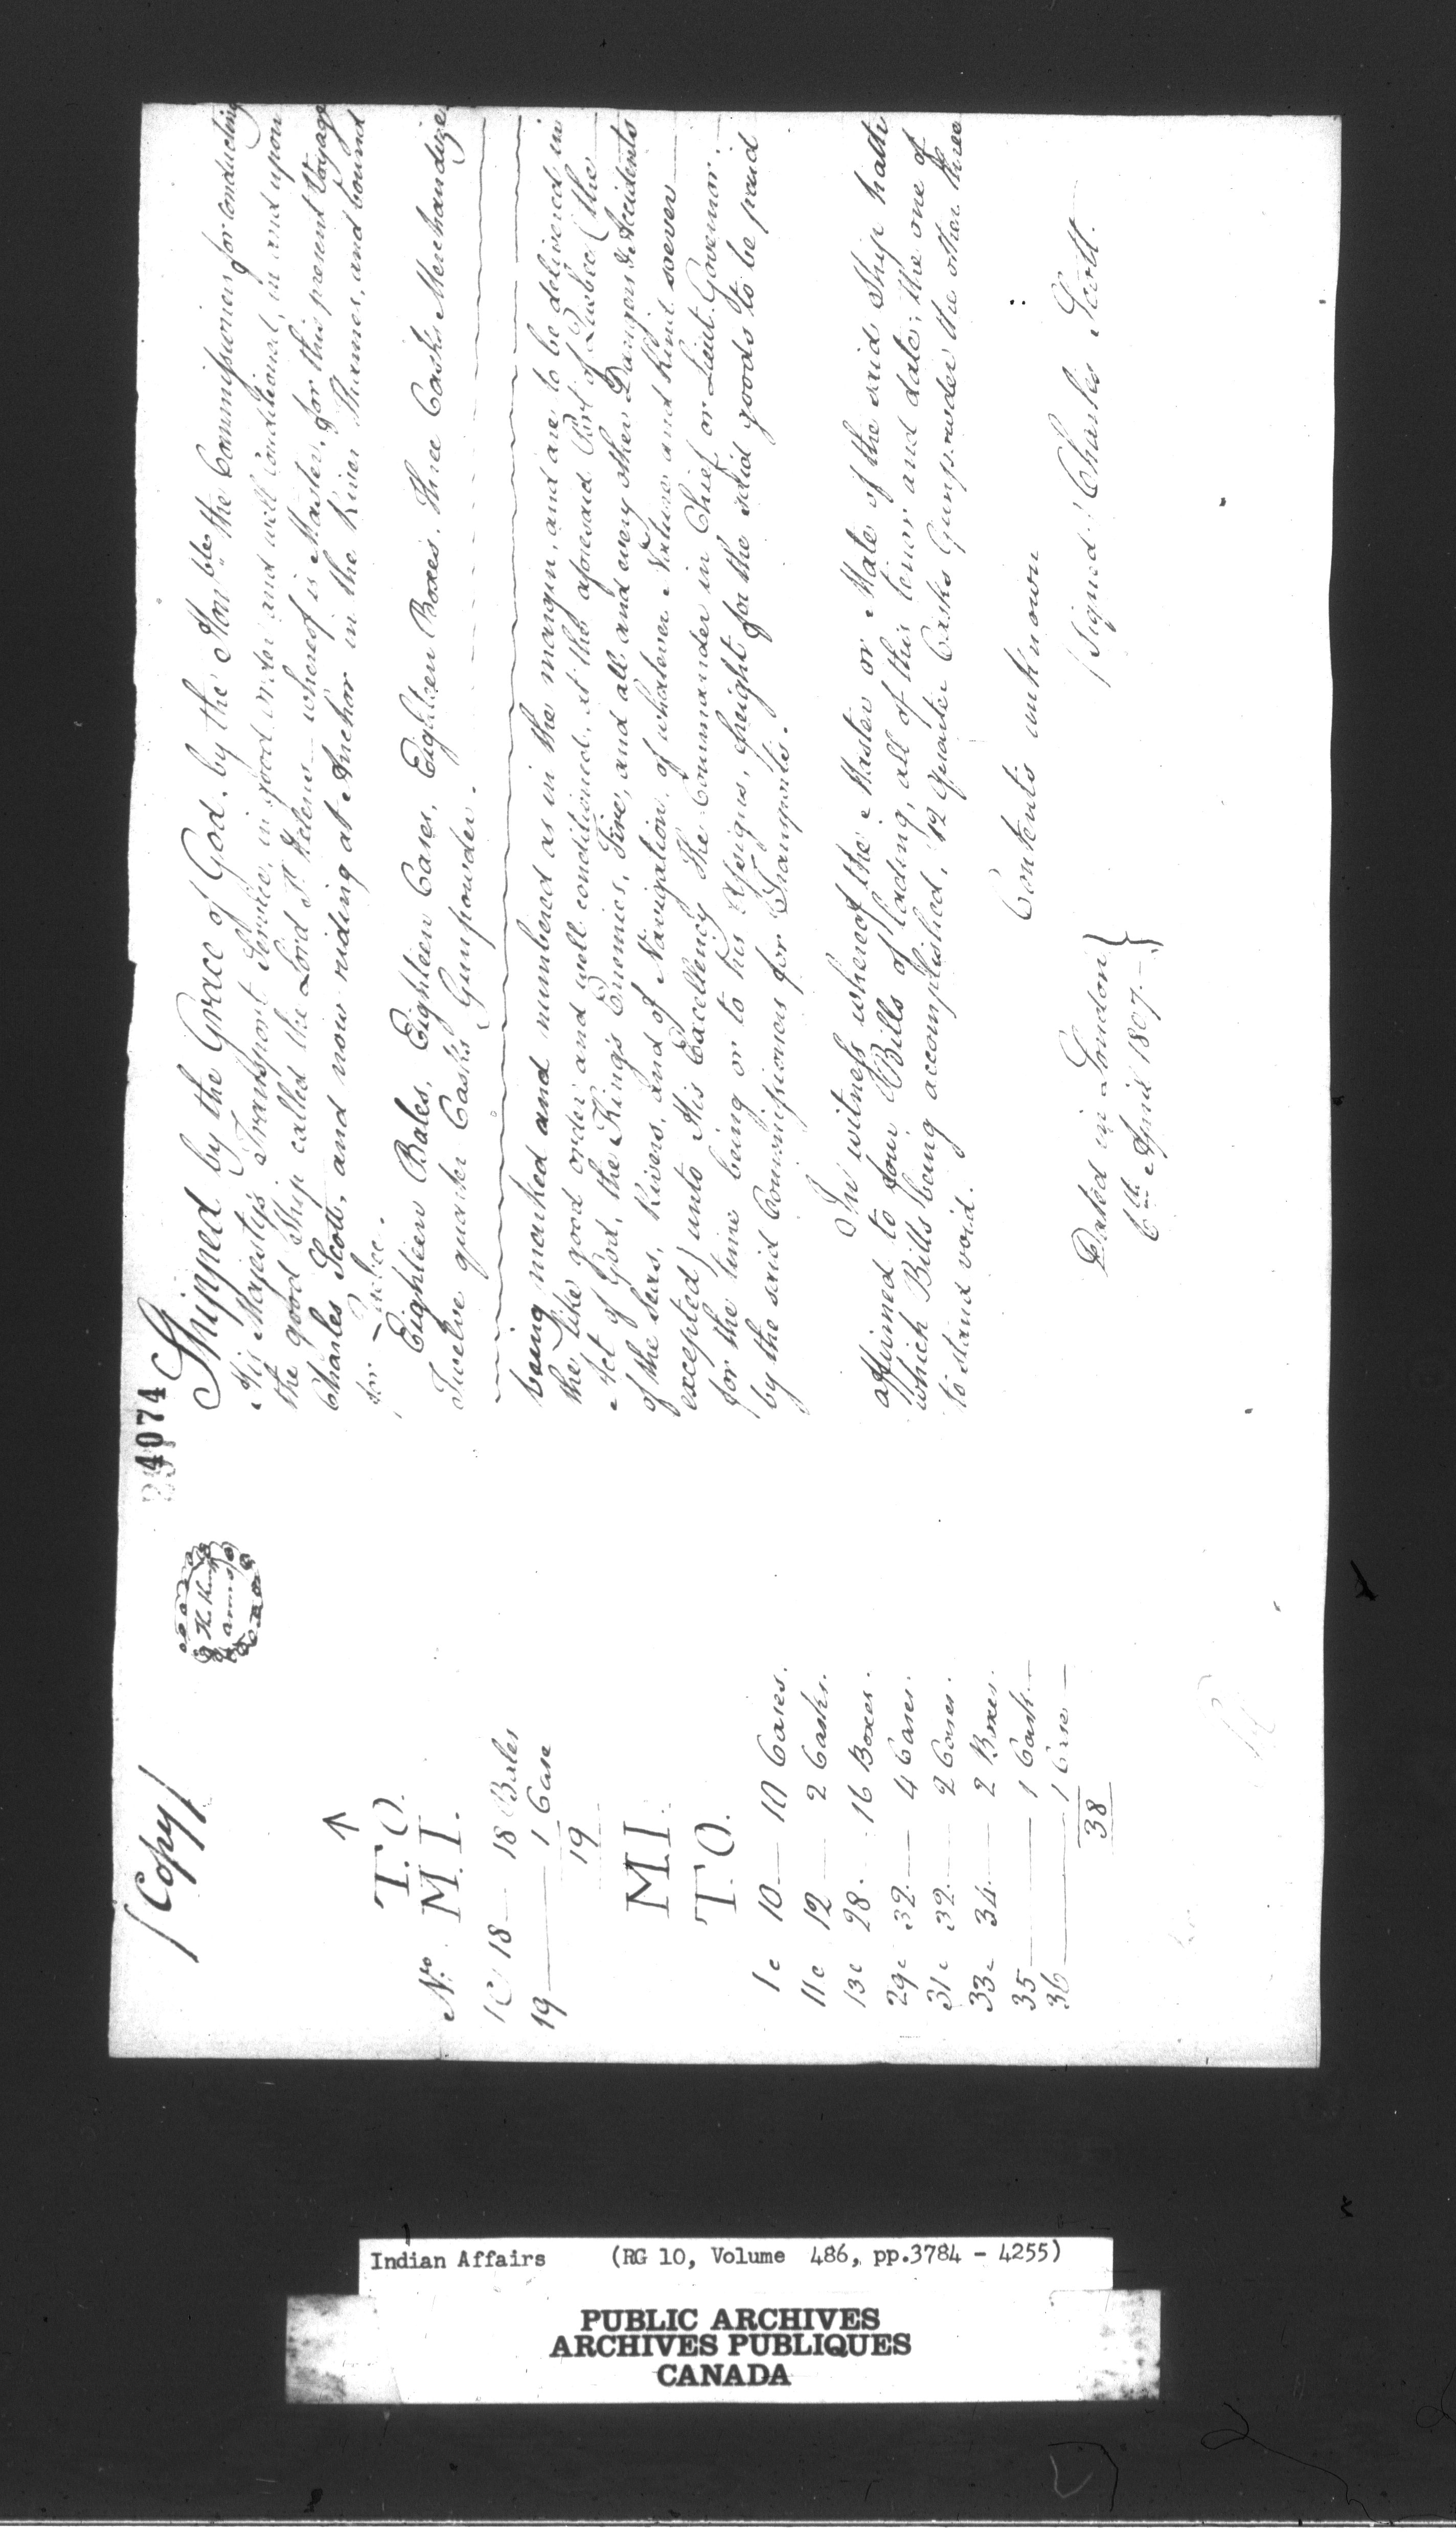 (Copy)
The King's
arms
4074
↑
T.O.
No. M.I.
1 C 18 — 18 Bales
19 — 1 Case
19
M.I.
T.O.
1 c 10 — 10 Cases.
11 c 12 — 2 Casks.
13 c 28 - 16 Boxes.
29 c 32 — 4 Cases.
31 c 32 — 2 Cases.
33 c 34 — 2 Boxes.
35 — 1 Cask —
36 — 1 Case —
38
Shipped by the Grace of God, by the Honble the Commissioners for conducting
His Majesty's Transport Service, in good order and well Conditioned, in and upon
the good Ship called the Lord St Helens — whereof is Master, for this present Voyage
Charles Scott, and now riding at Anchor in the River Thames, and bound
for Quebec.
Eighteen Bales, Eighteen Cases, Eighteen Boxes, Three Casks Merchandize
Twelve quarter Casks Gunpowder.
being marked and numbered as in the margin, and are to be delivered in
the like good order and well conditioned, at the aforesaid Port of Quebec (the
Act of God, the King's Enemies, Fire, and all and every other Dangers & Accidents
of the Seas, Rivers, and of Navigation, of whatever Nature and Kind soever
excepted) unto His Excellency The Commander in Chief or Lieut. Governor
for the time being or to his Assigns, freight for the said goods to be paid
by the said Commissioners for Transports.
In witness whereof the Master or Mate of the said Ship hath
affirmed to four Bills of lading, all of this tenor and date, the one of
which Bills being accomplished, 12 quarter Casks Gunpowder the other three
to stand void.
Contents unknown
Dated in London }
6th April 1807. — }
(Signed) Charles Scott.
Indian Affairs (RG 10, Volume 486, pp.3784 - 4255)
PUBLIC ARCHIVES
ARCHIVES PUBLIQUES
CANADA